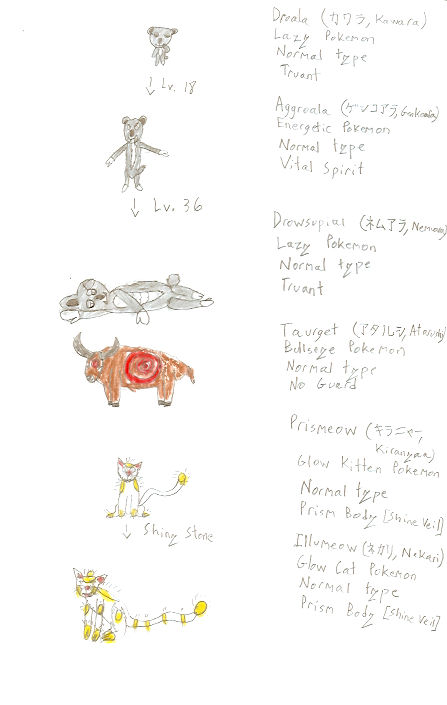 Droala (カワラ, Kawara)
Lazy Pokemon
Normal type
Truant
↓ Lv. 18
Aggroala (ゲンコアラ, Genkoala)
Energetic Pokemon
Normal type
Vital Spirit
↓ Lv. 36
Drowsupial (ネムアラ, Nemuara)
Lazy Pokemon
Normal type
Truant
Taurget (アタルシ, Atarushi)
Bullseye Pokemon
Normal type
No Guard
Prismeow (キラニャー,
Kiranyaa)
Glow Kitten Pokemon
Normal type
Prism Body [Shine Veil]
↓ Shiny Stone
Illumeow (ネカリ, Nekari)
Glow Cat Pokemon
Normal type
Prism Body [Shine Veil]